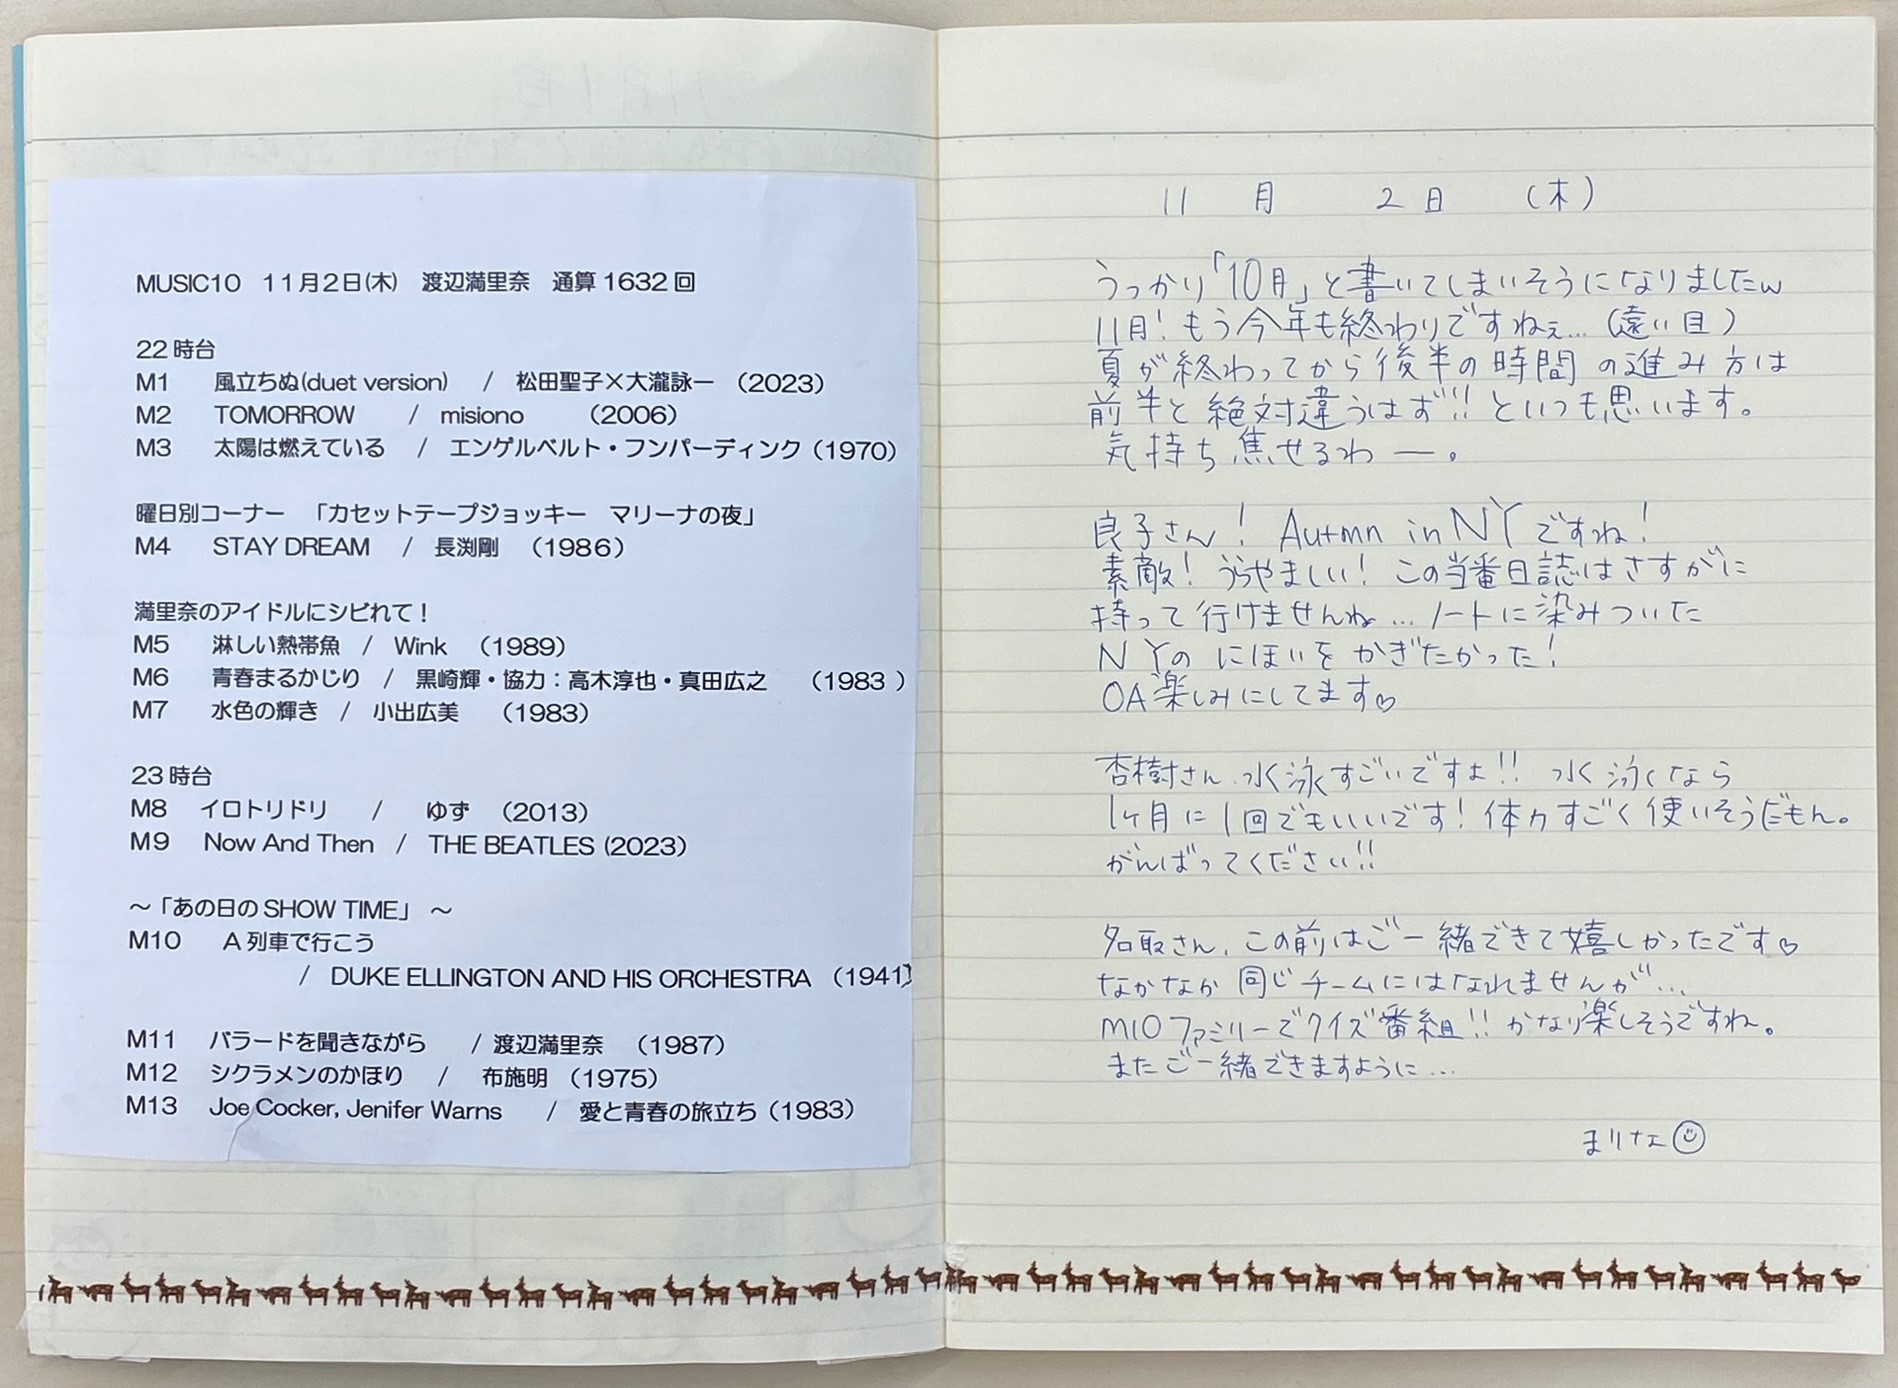 MUSIC10 11月2日(木) 渡辺満里奈 通算1632回
22時台
M1 風立ちぬ(duet version) / 松田聖子×大瀧詠一 (2023)
M2 TOMORROW / misiono (2006)
M3 太陽は燃えている / エンゲルベルト・フンパーディンク(1970)
曜日別コーナー 「カセットテープジョッキー マリーナの夜」
M4 STAY DREAM / 長渕剛 (1986)
満里奈のアイドルにシビれて!
M5 淋しい熱帯魚 / Wink (1989)
M6 青春まるかじり / 黒崎輝・協力:高木淳也・真田広之 (1983 )
M7 水色の輝き / 小出広美 (1983)
23時台
M8 イロトリドリ / ゆず (2013)
M9 Now And Then / THE BEATLES (2023)
~「あの日のSHOW TIME」 ~
M10 A列車で行こう
/ DUKE ELLINGTON AND HIS ORCHESTRA (1941)
M11 バラードを聞きながら / 渡辺満里奈 (1987)
M12 シクラメンのかほり / 布施明 (1975)
M13 Joe Cocker, Jenifer Warns / 愛と青春の旅立ち(1983)
11月 2日 (木)
うっかり「10月」と書いてしまいそうになりましたw
11月!もう今年も終わりですねぇ…(遠い目)
夏が終わってから後半の時間の進み方は
前半と絶対違うはず!!といつも思います。
気持ち焦せるわー。
良子さん! Autmn in NYですね!
素敵!うらやましい!この当番日誌はさすがに
持って行けませんね…ノートに染みついた
NYのにほいをかぎたかった!
OA楽しみにしてます♡
杏樹さん、水泳すごいですよ!!水泳なら
1ヶ月に1回でもいいです!体力すごく使いそうだもん。
がんばってください!!
名取さん、この前はご一緒できて嬉しかったです♡
なかなか同じチームにはなれませんが…
M10ファミリーでクイズ番組!!かなり楽しそうですね。
またご一緒できますように…
まりな☺